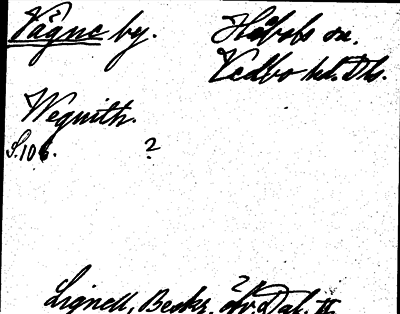 Vågne by. Håbols sn.
Vedbo hd. Dls.
Wegnith.
S. 106. ?
Lignell, Beskr. öfv. Dal. II